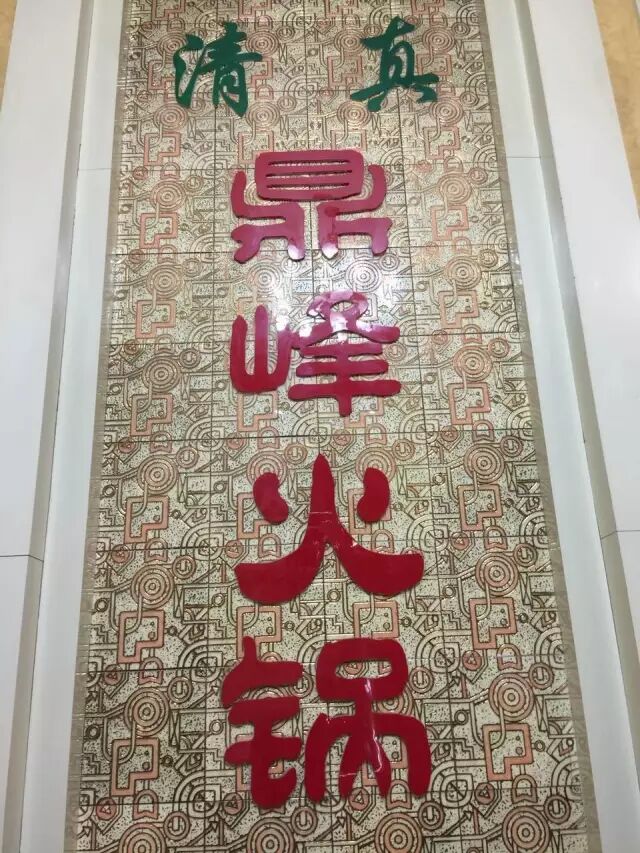 清真
鼎峰火锅